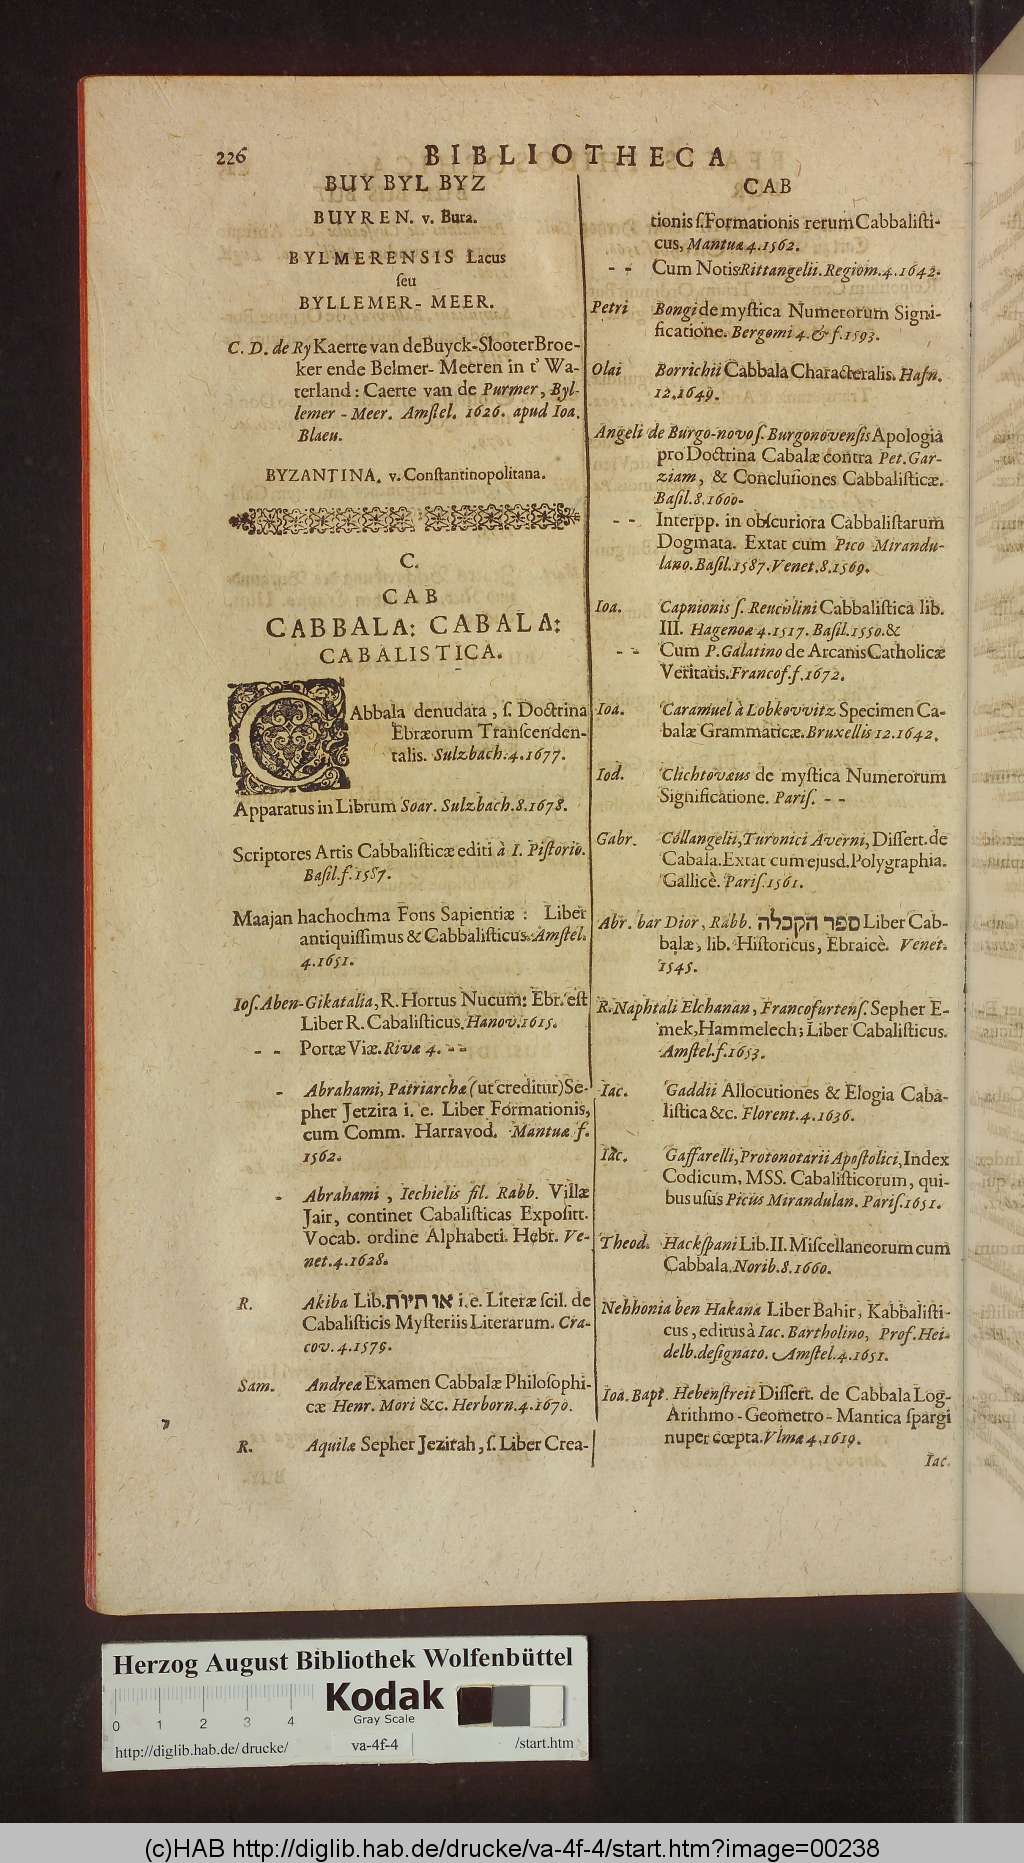 226
BIBLIOTHECA
BUY BYL BYZ
BUYREN. v. Bura.
BYLMERENSIS Lacus
ſeu
BYLLEMER-MEER.
C. D. de Ry Kaerte van de Buyck-Slooter Broe-
ker ende Belmer-Meeren in t' Wa-
terland: Caerte van de Purmer, Byl-
lemer-Meer. Amſtel. 1626. apud Ioa.
Blaeu.
BYZANTINA. v. Conſtantinopolitana.
C.
CAB
CABBALA: CABALA:
CABALISTICA.
CAbbala denudata, ſ. Doctrina
Ebræorum Tranſcenden-
talis. Sulzbach. 4. 1677.
Apparatus in Librum Soar. Sulzbach. 8. 1678.
Scriptores Artis Cabbaliſticæ editi à I. Piſtorio.
Baſil. f. 1587.
Maajan hachochma Fons Sapientiæ: Liber
antiquiſſimus & Cabbaliſticus. Amſtel.
4. 1651.
Ioſ. Aben-Gikatalia, R. Hortus Nucum: Ebr. eſt
Liber R. Cabaliſticus. Hanov. 1615.
- - Portæ Viæ. Rivæ 4. - -
- Abrahami, Patriarchæ (ut creditur) Se-
pher Jetzira i. e. Liber Formationis,
cum Comm. Harravod. Mantuæ f.
1562.
- Abrahami, Iechielis fil. Rabb. Villæ
Jair, continet Cabaliſticas Expoſitt.
Vocab. ordine Alphabeti. Hebr. Ve-
net. 4. 1628.
R. Akiba Lib. או תיות i. e. Literæ ſcil. de
Cabaliſticis Myſteriis Literarum. Cra-
cov. 4. 1579.
Sam. Andreæ Examen Cabbalæ Philoſophi-
cæ Henr. Mori &c. Herborn. 4. 1670.
R. Aquilæ Sepher Jezirah, ſ. Liber Crea-
CAB
tionis ſ. Formationis rerum Cabbaliſti-
cus, Mantuæ 4. 1562.
- - Cum Notis Rittangelii. Regiom. 4. 1642.
Petri Bongi de myſtica Numerorum Signi-
ficatione. Bergomi 4. & f. 1593.
Olai Borrichii Cabbala Characteralis. Hafn.
12. 1649.
Angeli de Burgo-novo ſ. Burgonovenſis Apologia
pro Doctrina Cabalæ contra Pet. Gar-
ziam, & Concluſiones Cabbaliſticæ.
Baſil. 8. 1600.
- - Interpp. in obſcuriora Cabbaliſtarum
Dogmata. Extat cum Pico Mirandu-
lano. Baſil. 1587. Venet. 8. 1569.
Ioa. Capnionis ſ. Reuchlini Cabbaliſtica lib.
III. Hagenoæ 4. 1517. Baſil. 1550. &
- - Cum P. Galatino de Arcanis Catholicæ
Veritatis. Francof. f. 1672.
Ioa. Caramuel à Lobkovvitz Specimen Ca-
balæ Grammaticæ. Bruxellis 12. 1642.
Iod. Clichtovæus de myſtica Numerorum
Significatione. Pariſ. - -
Gabr. Collangelii, Turonici Averni, Diſſert. de
Cabala. Extat cum ejusd. Polygraphia.
Gallicè. Pariſ. 1561.
Abr. bar Dior, Rabb. ספר הקבלה Liber Cab-
balæ, lib. Hiſtoricus, Ebraicè. Venet.
1545.
R. Naphtali Elchanan, Francofurtenſ. Sepher E-
mek, Hammelech; Liber Cabaliſticus.
Amſtel. f. 1653.
Iac. Gaddii Allocutiones & Elogia Caba-
liſtica &c. Florent. 4. 1636.
Iac. Gaffarelli, Protonotarii Apoſtolici, Index
Codicum, MSS. Cabaliſticorum, qui-
bus uſus Picus Mirandulan. Pariſ. 1651.
Theod. Hackſpani Lib. II. Miſcellaneorum cum
Cabbala. Norib. 8. 1660.
Nehhonia ben Hakana Liber Bahir, Kabbaliſti-
cus, editus à Iac. Bartholino, Prof. Hei-
delb. deſignato. Amſtel. 4. 1651.
Ioa. Bapt. Hebenſtreit Diſſert. de Cabbala Log-
Arithmo-Geometro-Mantica ſpargi
nuper cœpta. Vlmæ 4. 1619.
Iac.
Herzog August Bibliothek Wolfenbüttel
Kodak
Gray Scale
0 1 2 3 4
http://diglib.hab.de/drucke/ va-4f-4 /start.htm
(c)HAB http://diglib.hab.de/drucke/va-4f-4/start.htm?image=00238